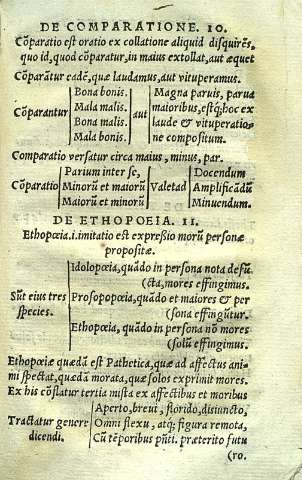 DE COMPARATIONE. 10.
Cõparatio est oratio ex collatione aliquid disquirẽs,
quo id, quod cõparatur, in maius extollat, aut æquet
Cõparãtur eadẽ, quæ laudamus, aut vituperamus.
Cõparantur
Bona bonis.
Mala malis.
Bona malis.
Mala bonis.
aut
Magna paruis, parua
maioribus, estq; hoc ex
laude & vituperatio-
ne compositum.
Comparatio versatur circa maius, minus, par.
Cõparatio
Parium inter se,
Minorũ et maiorũ
Maiorũ et minorũ
Valet ad
Docendum
Amplificãdũ
Minuendum.
DE ETHOPOEIA. 11.
Ethopœia .i. imitatio est expreßio morũ personæ
propositæ.
Sũt eius tres
species.
Idolopœia, quãdo in persona nota defũ
(cta, mores effingimus.
Prosopopœia, quãdo et maiores & per
(sona effingũtur.
Ethopœia, quãdo in persona nõ mores
(solũ effingimus.
Ethopœiæ quædã est Pathetica, quæ ad affectus ani-
mi spectat, quædã morata, quæ solos exprimit mores.
Ex his cõflatur tertia mista ex affectibus et moribus
Tractatur genere
dicendi.
Aperto, breui, florido, disiuncto,
Omni flexu, atq; figura remota,
Cũ tẽporibus pñti. præterito futu
(ro.